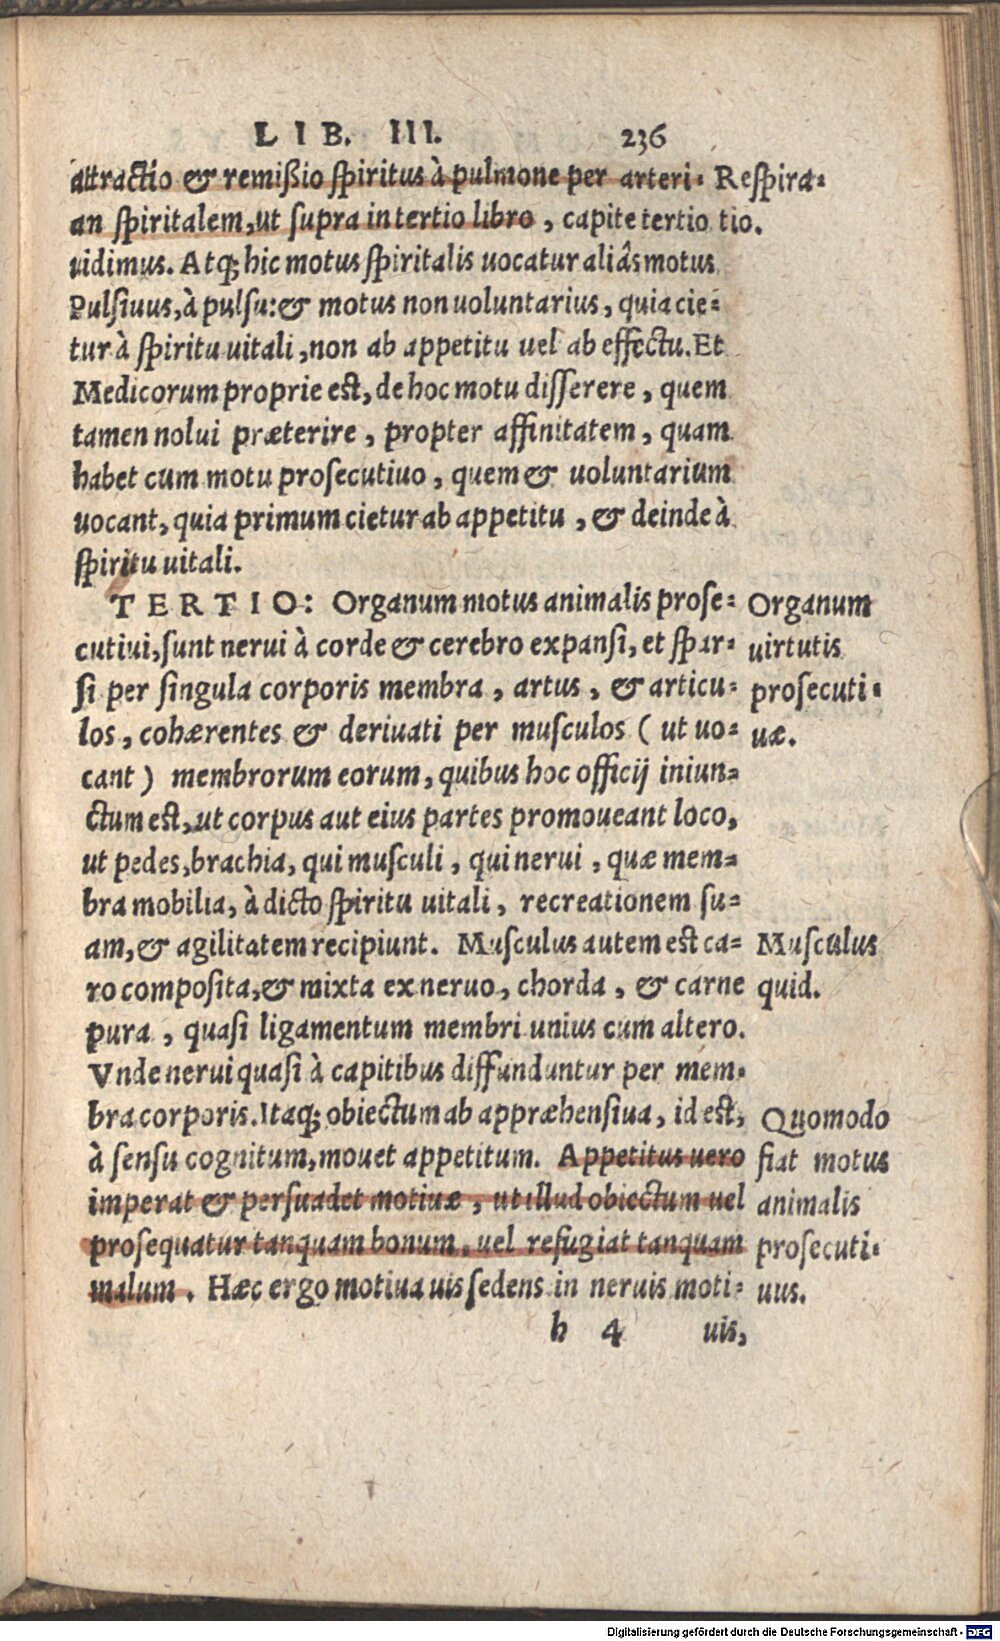 LIB. III. 236
attractio & remißio spiritus à pulmone per arteri- Respira-
an spiritalem, ut supra in tertio libro, capite tertio tio.
uidimus. Atq; hic motus spiritalis uocatur aliâs motus
Pulsiuus, à pulsu: & motus non uoluntarius, quia cie-
tur à spiritu uitali, non ab appetitu uel ab effectu. Et
Medicorum proprie est, de hoc motu disserere, quem
tamen nolui præterire, propter affinitatem, quam
habet cum motu prosecutiuo, quem & uoluntarium
uocant, quia primum cietur ab appetitu, & deinde à
spiritu uitali.
TERTIO: Organum motus animalis prose- Organum
cutiui, sunt nerui à corde & cerebro expansi, et spar- uirtutis
si per singula corporis membra, artus, & articu- prosecuti-
los, cohærentes & deriuati per musculos (ut uo- uæ.
cant) membrorum eorum, quibus hoc officij iniun-
ctum est, ut corpus aut eius partes promoueant loco,
ut pedes, brachia, qui musculi, qui nerui, quæ mem-
bra mobilia, à dicto spiritu uitali, recreationem su-
am, & agilitatem recipiunt. Musculus autem est ca- Musculus
ro composita, & mixta ex neruo, chorda, & carne quid.
pura, quasi ligamentum membri unius cum altero.
Vnde nerui quasi à capitibus diffunduntur per mem-
bra corporis. Itaq; obiectum ab appræhensiua, id est, Quomodo
à sensu cognitum, mouet appetitum. Appetitus uero fiat motus
imperat & persuadet motiuæ, ut illud obiectum uel animalis
prosequatur tanquam bonum, uel refugiat tanquam prosecuti-
malum. Hæc ergo motiua uis sedens in neruis moti- uus.
h 4 uis,
Digitalisierung gefördert durch die Deutsche Forschungsgemeinschaft - DFG